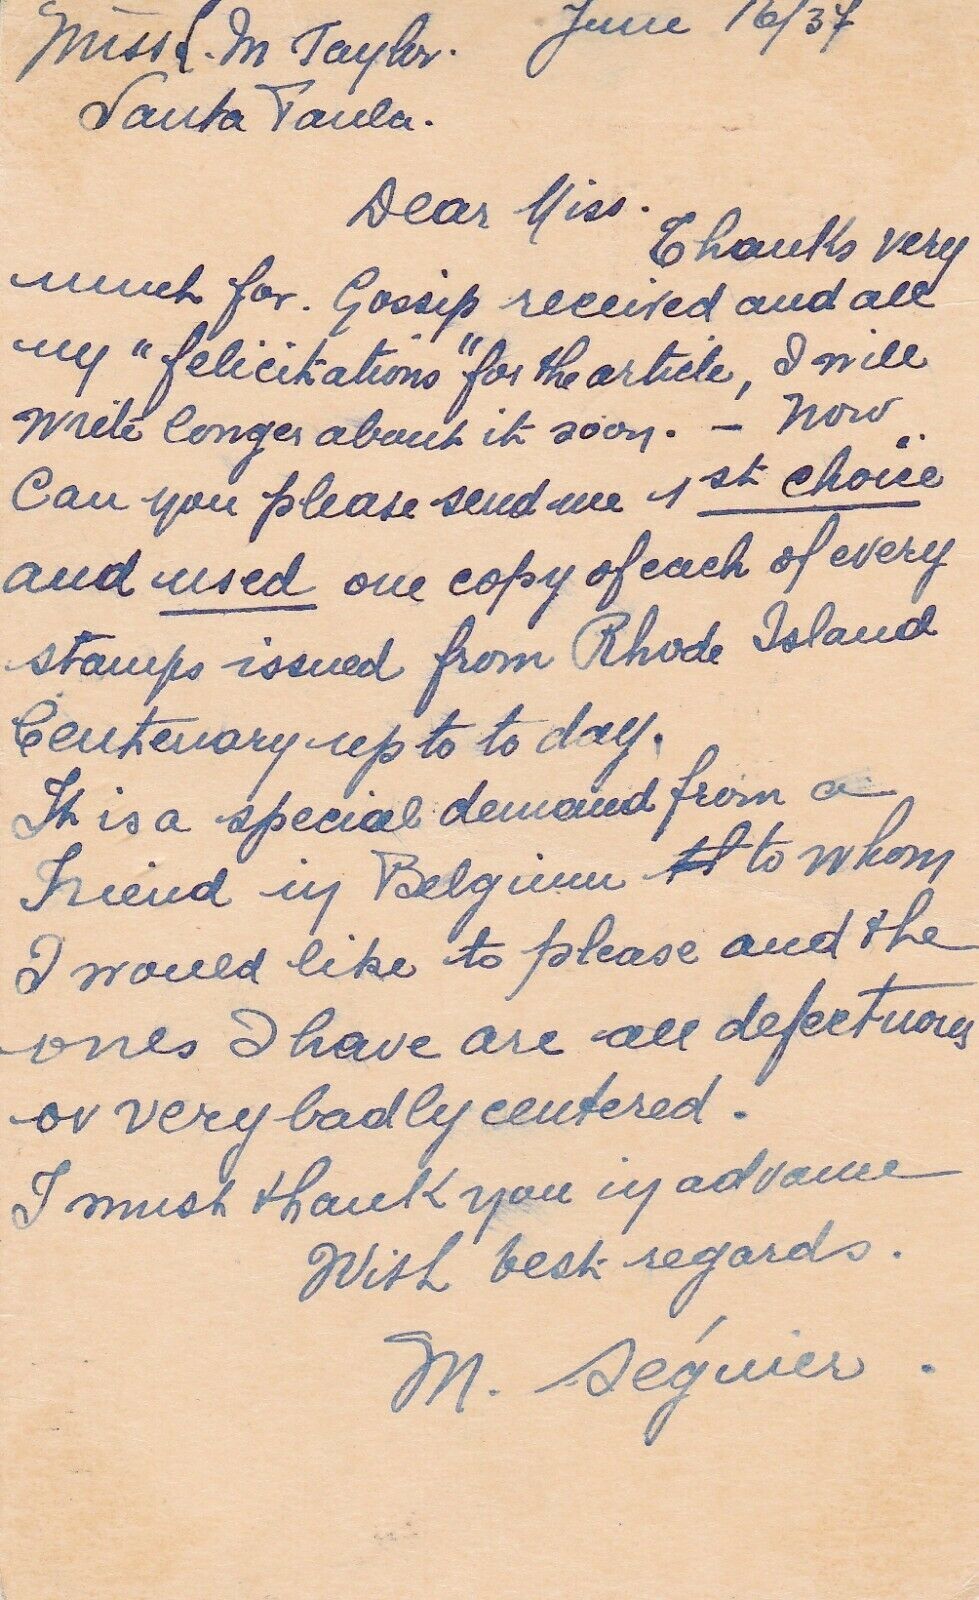 June 16/37
Miss L. M Taylor.
Santa Paula.
Dear Miss.
Thanks very
much for. Gossip received and all
my "felicitations" for the article, I will
write longer about it soon. - Now
Can you please send me 1st choice
and used one copy of each of every
stamps issued from Rhode Island
Centenary up to to day.
It is a special demand from a
Friend in Belgium to whom
I would like to please and the
ones I have are all defectuous
or very badly centered.
I must thank you in advance
With best regards.
M. Séguier.